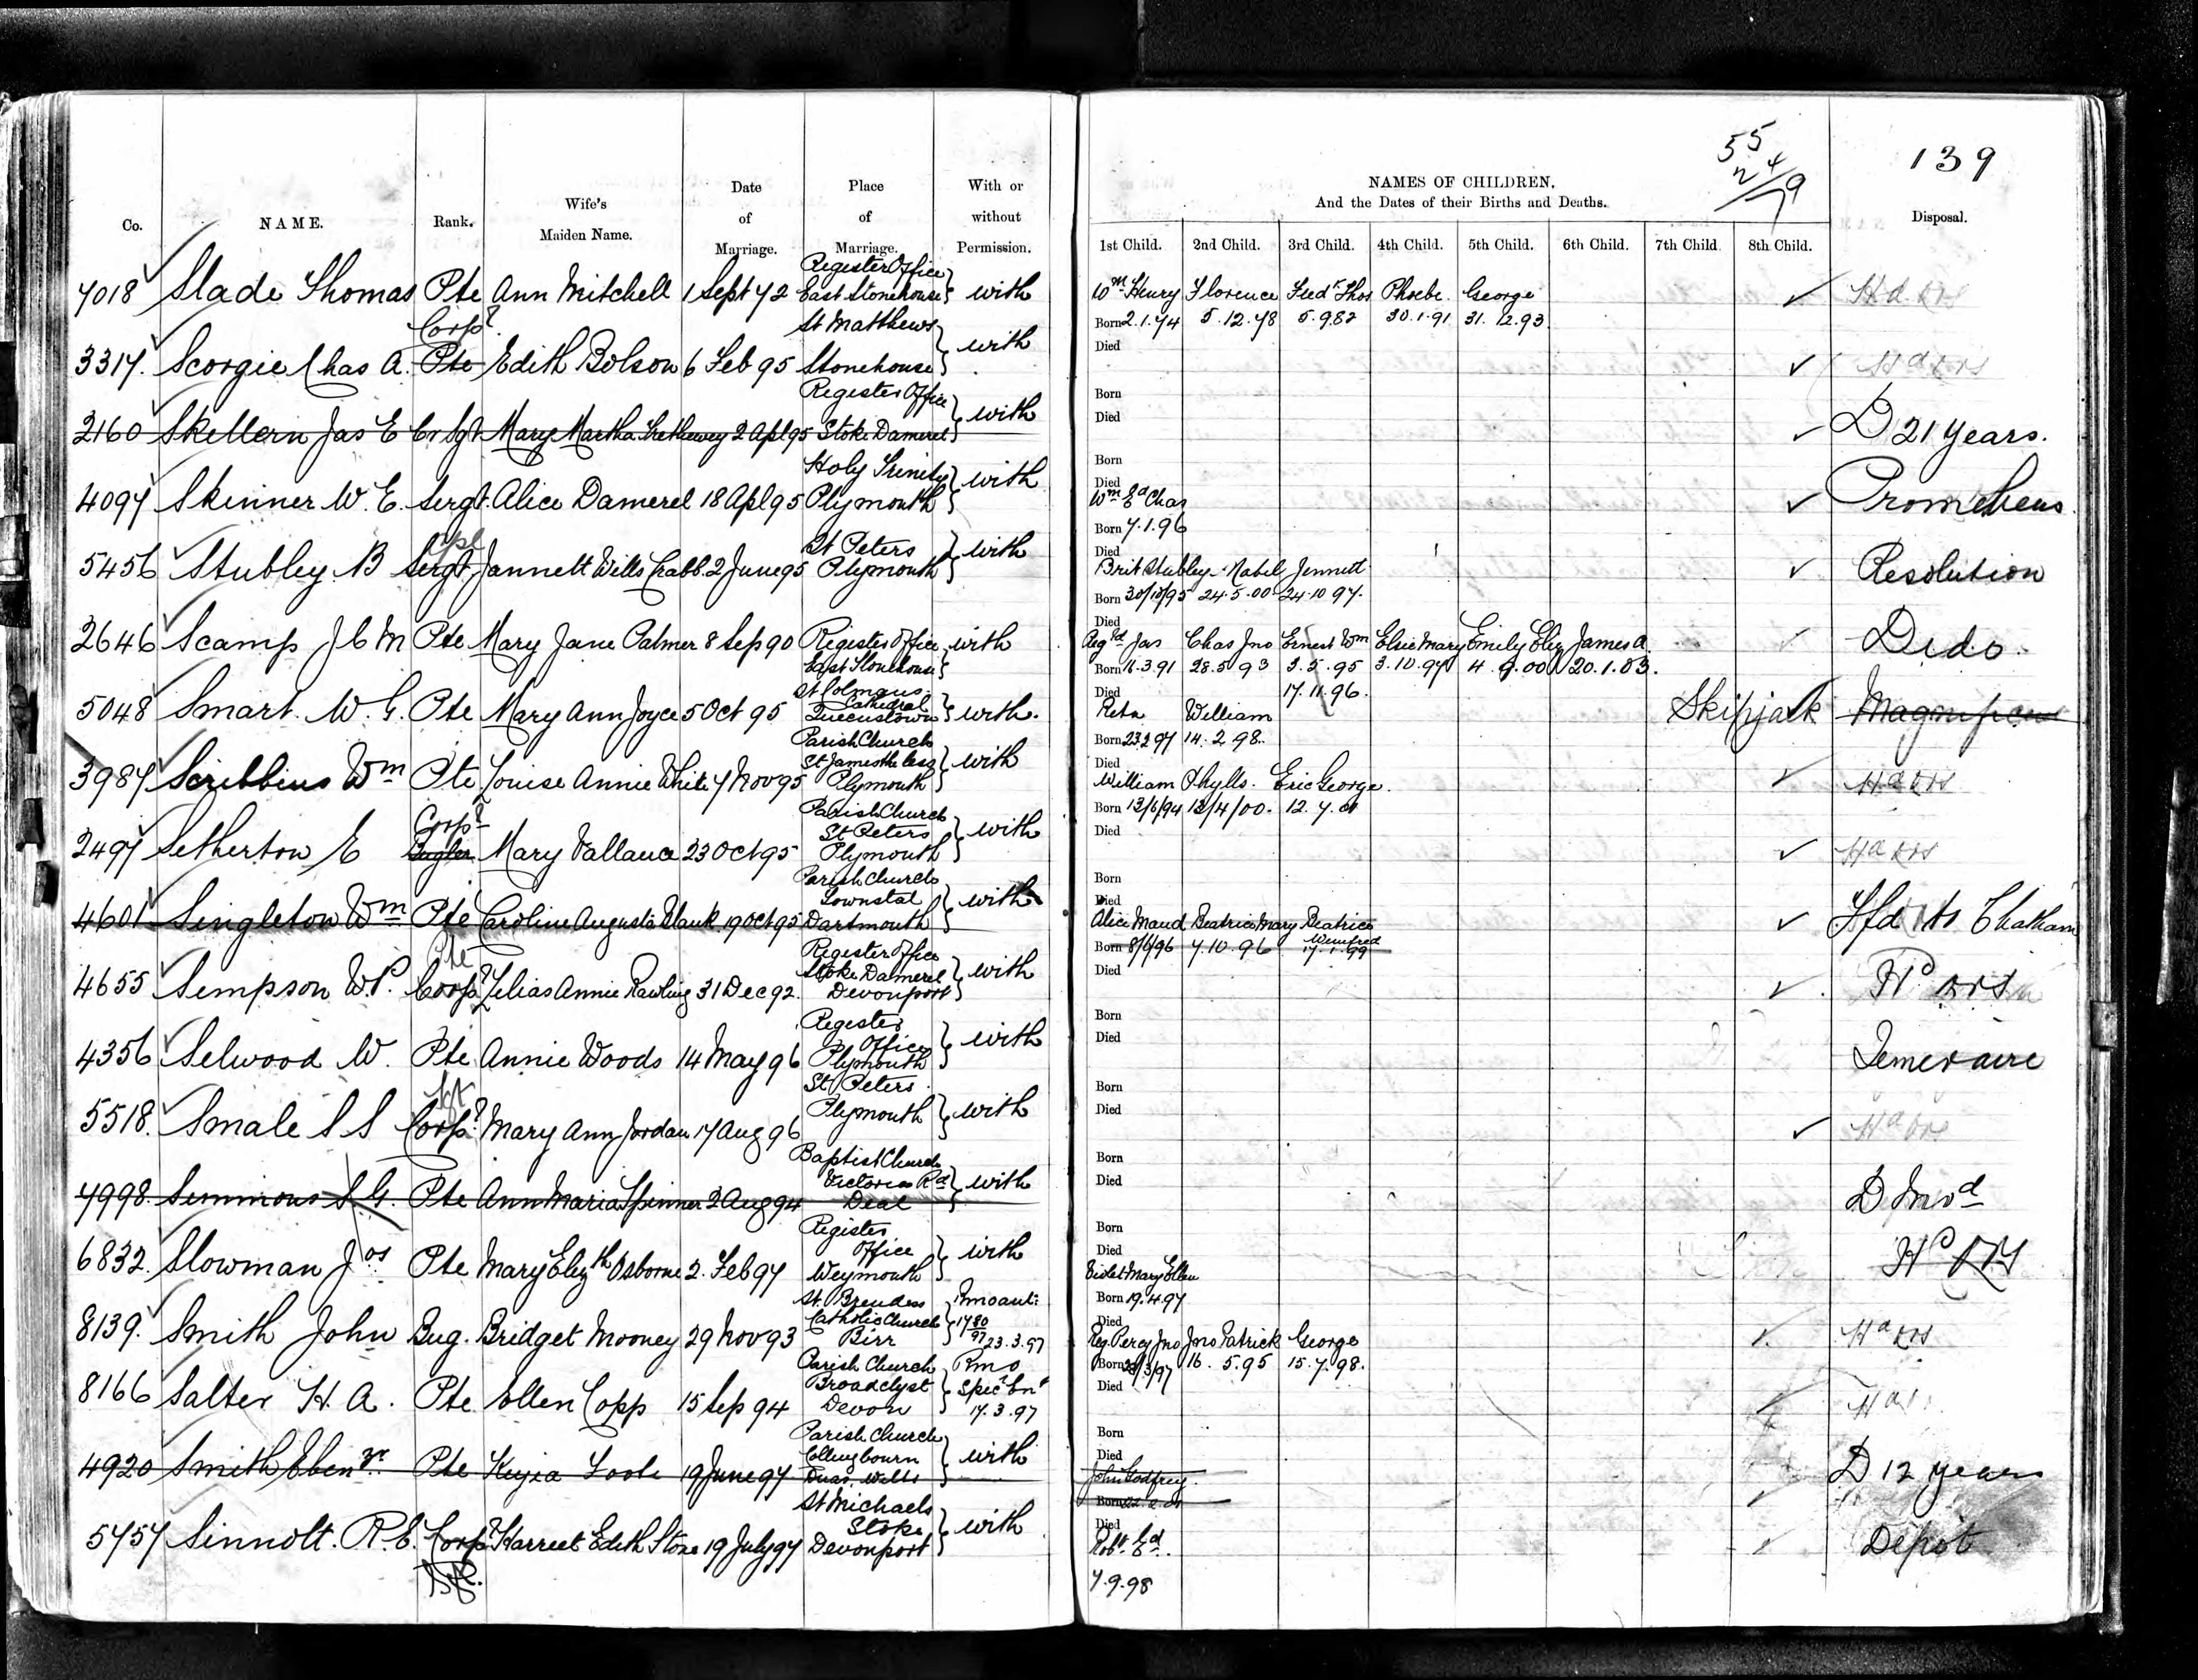 55
24/79
139
Co. NAME. Rank. Wife's Maiden Name. Date of Marriage. Place of Marriage. With or without Permission.
NAMES OF CHILDREN,
And the Dates of their Births and Deaths.
Disposal.
1st Child. 2nd Child. 3rd Child. 4th Child. 5th Child. 6th Child. 7th Child 8th Child.
7018 Slade Thomas Pte Ann Mitchell 1 Sept 72 Register Office East Stonehouse with
Wm Henry Florence Fredk Thos Phoebe George Hd Qrs
Born 2.1.74 5.12.78 5.9.82 30.1.91 31.12.93
Died
3317. Scorgie Chas A. Corpl Pte Edith Bolson 6 Feb 95 St Matthews Stonehouse with
Hd Qrs
Born
Died
2160 Skellern Jas E Cr Sgt Mary Martha Trethewey 2 Apl 95 Register Office Stoke Damerel with
D 21 years.
Born
Died
4097 Skinner W. E. Sergt. Alice Damerel 18 Apl 95 Holy Trinity Plymouth with
Wm Ed Chas Prometheus
Born 7.1.96
Died
5456 Stubley B Sergt Jannett Wills Crabb. 2 June 95 St Peters Plymouth with
Brit Stubley Mabel Jennett Resolution
Born 30/10/95 24.5.00 24.10 97.
Died
2646 Scamp J C M Pte Mary Jane Palmer 8 Sep 90 Register Office East Stonehouse with
Regd Jas Chas Jno Ernest Wm Elsie Mary Emily Eliz James A. Dido
Born 16.3.91 28.5.93 3.5.95 3.10.97 4.9.00 20.1.03.
Died 17.11.96.
5048 Smart W. G. Pte Mary Ann Joyce 5 Oct 95 St Colmans Cathedral Queenstown with.
Reta William Skipjack Magnificent
Born 23.2.97 14.2.98.
Died
3987 Scribbins Wm Pte Louise Annie White 7 Nov 95 Parish Church St James the less Plymouth with
William Phylls. Eric George. Hd Qrs
Born 13/6/94 13/4/00. 12.7.01
Died
2497 Setherton E Corpl Bugler Mary Vallance 23 Oct 95 Parish Church St Peters Plymouth with
Hd Qrs
Born
Died
4601 Singleton Wm Pte Caroline Augusta Blank 19 Oct 95 Parish Church Townstal Dartmouth with
Alice Maud Beatrice Mary Beatrice Winifred Tfd to Chatham
Born 8/6/96 7.10.96 17.1.99
Died
4655 Simpson W.P. Pte Corpl Zelias Annie Rawling 31 Dec 92. Register Office Stoke Damerel Devonport with
Hd Qrs
Born
Died
4356 Selwood W. Pte Annie Woods 14 May 96 Register Office Plymouth with
Temeraire
Born
Died
5518. Smale S S Sgt Corpl Mary Ann Jordan 17 Aug 96 St Peters Plymouth with
Hd Qrs
Born
Died
4998. Simmons S G. Pte Ann Maria Spinner 2 Aug 94 Baptist Church Victoria Rd Deal with
D Invd
Born
Died
6832. Slowman Jos Pte Mary Elizth Osborne 2. Feb 97 Register Office Weymouth with
Violet Mary Ellen Hd Qrs
Born 19.4.97
Died
8139. Smith John Bug. Bridget Mooney 29 Nov 93 St. Brendens Catholic Church Birr 1780/97 23.3.97
Reg. Percy Jno Jno Patrick George Hd Qrs
Born 28/3/97 16.5.95 15.7.98.
Died
8166 Salter H. A. Pte Ellen Copp 15 Sep 94 Parish Church Broadclyst Devon Rmo 17.3.97
Born
Died
4920 Smith Ebenzr. Pte Keyza Toole 19 June 97 Parish Church Collingbourn Ducis, Wilts with
John Godfrey. D 12 years
Born
Died
5757 Sinnott. R. E. Corpl Pte. Harriet Edith Stone 19 July 97 St Michaels Stoke Devonport with
Robt Ed. Depôt
7.9.98